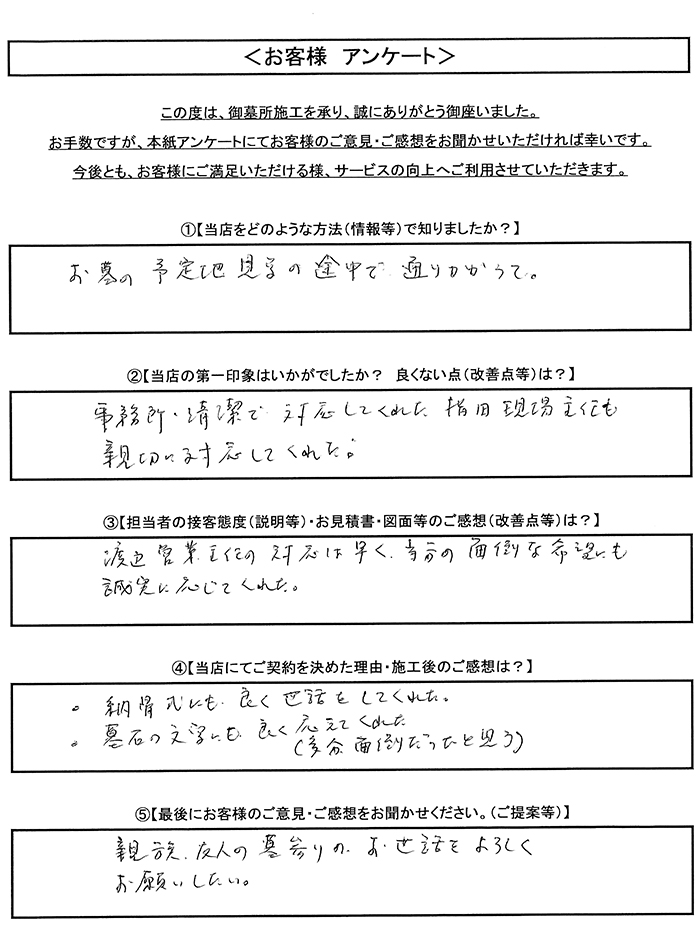 ＜お客様　アンケート＞
この度は、御墓所施工を承り、誠にありがとう御座いました。
お手数ですが、本紙アンケートにてお客様のご意見・ご感想をお聞かせいただければ幸いです。
今後とも、お客様にご満足いただける様、サービスの向上へご利用させていただきます。
①【当店をどのような方法（情報等）で知りましたか？】
お墓の予定地見るの途中で通りかかって。
②【当店の第一印象はいかがでしたか？　良くない点（改善点等）は？】
事務所・清潔で対応してくれた 現場主任も
親切に対応してくれた。
③【担当者の接客態度（説明等）・お見積書・図面等のご感想（改善点等）は？】
渡辺営業主任の対応は早く、当方の面倒な希望にも
誠実に応じてくれた。
④【当店にてご契約を決めた理由・施工後のご感想は？】
。納骨式にも良く世話をしてくれた。
。墓石の文字にも良く応えてくれた
（多分面倒だったと思う）
⑤【最後にお客様のご意見・ご感想をお聞かせください。（ご提案等）】
親族、友人の墓参りの、お世話をよろしく
お願いしたい。